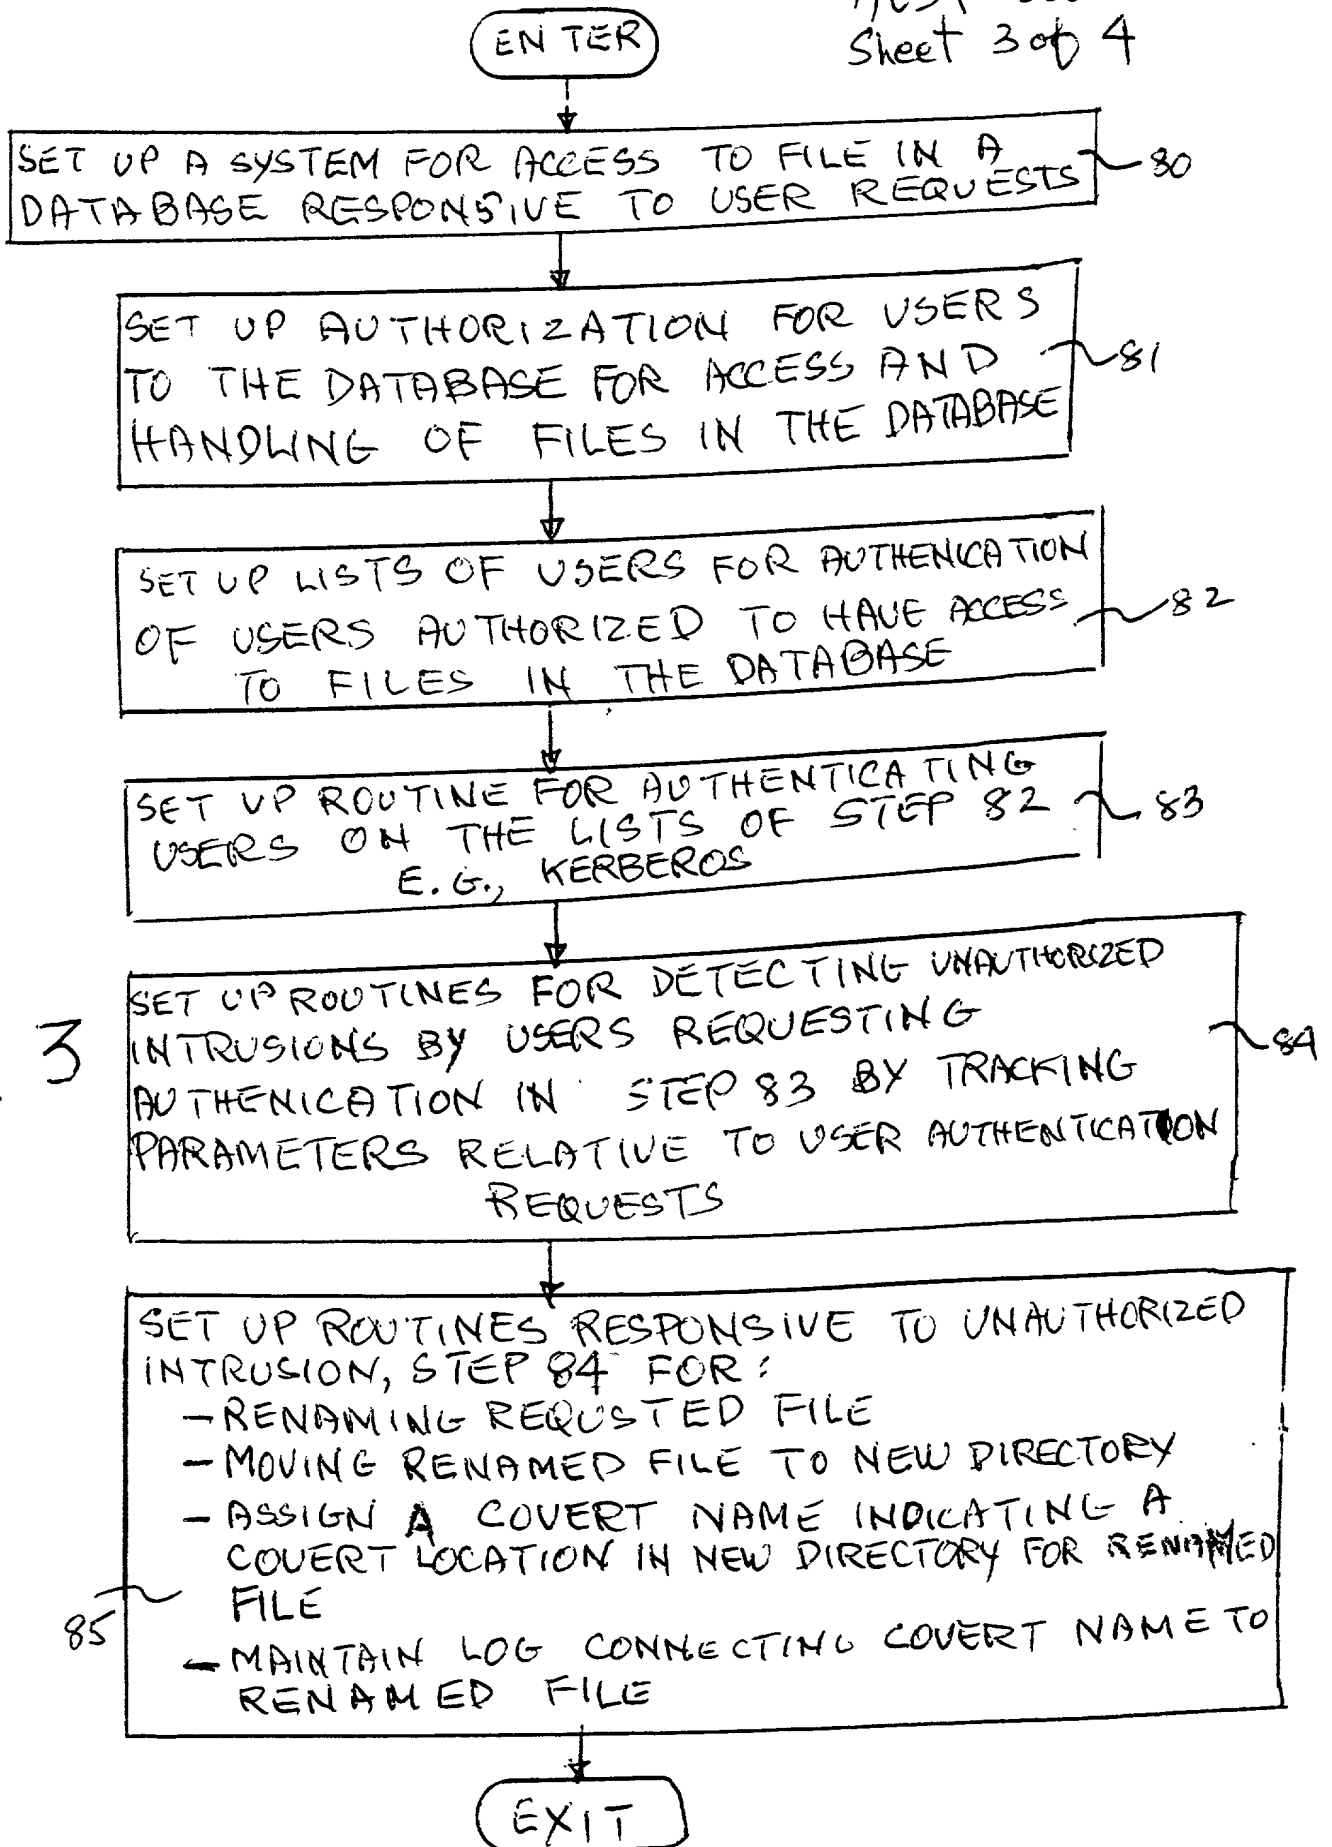 Sheet 3 of 4
ENTER
SET UP A SYSTEM FOR ACCESS TO FILE IN A
DATABASE RESPONSIVE TO USER REQUESTS
80
SET UP AUTHORIZATION FOR USERS
TO THE DATABASE FOR ACCESS AND
HANDLING OF FILES IN THE DATABASE
81
SET UP LISTS OF USERS FOR AUTHENICATION
OF USERS AUTHORIZED TO HAVE ACCESS
TO FILES IN THE DATABASE
82
SET UP ROUTINE FOR AUTHENTICATING
USERS ON THE LISTS OF STEP 82
E.G., KERBEROS
83
3
SET UP ROUTINES FOR DETECTING UNAUTHORIZED
INTRUSIONS BY USERS REQUESTING
AUTHENICATION IN STEP 83 BY TRACKING
PARAMETERS RELATIVE TO USER AUTHENTICATION
REQUESTS
84
SET UP ROUTINES RESPONSIVE TO UNAUTHORIZED
INTRUSION, STEP 84 FOR:
- RENAMING REQUSTED FILE
- MOVING RENAMED FILE TO NEW DIRECTORY
- ASSIGN A COVERT NAME INDICATING A
COVERT LOCATION IN NEW DIRECTORY FOR RENAMED
FILE
- MAINTAIN LOG CONNECTING COVERT NAME TO
RENAMED FILE
85
EXIT